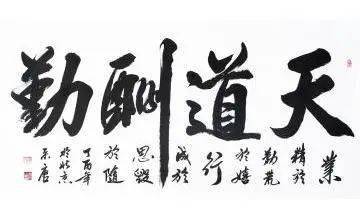 天道酬勤
業
精於
勤荒
於嬉
行
成於
思毀
於隨
丁酉年
於北京